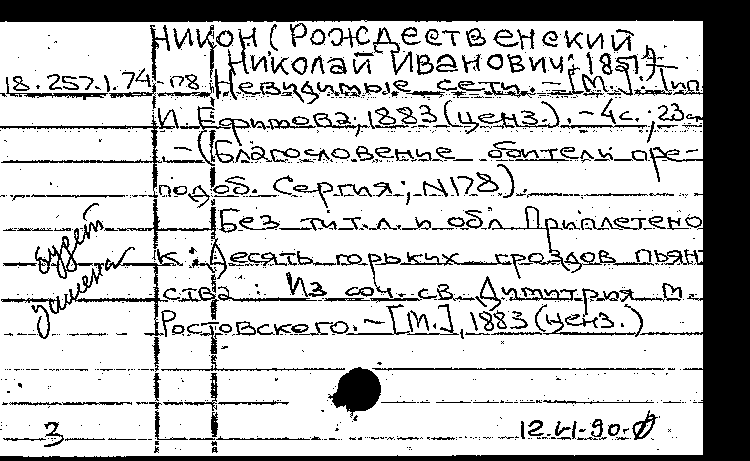 НИКОН (РОЖДЕСТВЕНСКИЙ
НИКОЛАЙ ИВАНОВИЧ; 1851)
18.257.1.74-178 Невидимые сети. - [М.]: Тип.
И. Ефимова, 1883 (ценз.). - 4с.; 23см
. - (Благословение обители пре-
подоб. Сергия; N178).
Без тит.л. и обл. Приплетено
к: Десять горьких гроздов пьян
ства: Из соч. св. Димитрия М.
Ростовского. - [М.], 1883 (ценз.)
будет
3